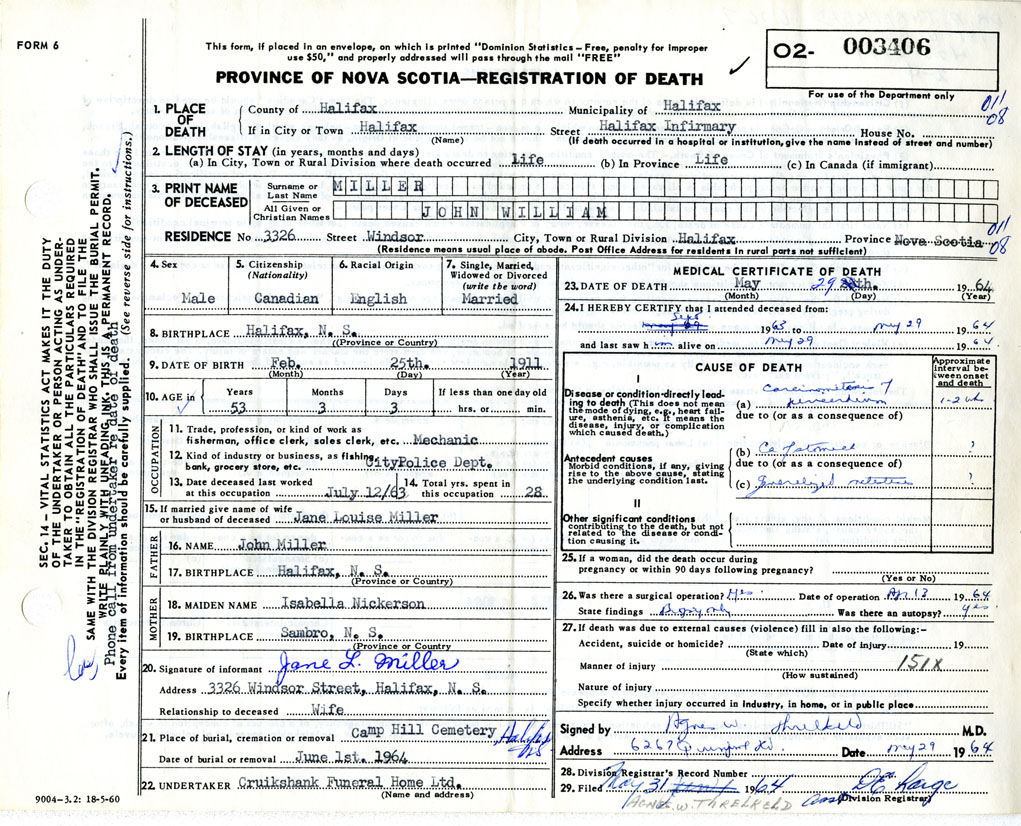 FORM 6
This form, if placed in an envelope, on which is printed "Dominion Statistics – Free, penalty for improper
use $50," and properly addressed will pass through the mail "FREE"
PROVINCE OF NOVA SCOTIA—REGISTRATION OF DEATH
02- 003406
For use of the Department only
011
08
1. PLACE OF DEATH
County of Halifax Municipality of Halifax
If in City or Town Halifax Street Halifax Infirmary House No.
(Name) (If death occurred in a hospital or institution, give the name instead of street and number)
2. LENGTH OF STAY (in years, months and days)
(a) In City, Town or Rural Division where death occurred life (b) In Province Life (c) In Canada (if immigrant)
3. PRINT NAME OF DECEASED
Surname or Last Name MILLER
All Given or Christian Names JOHN WILLIAM
RESIDENCE No 3326 Street Windsor City, Town or Rural Division Halifax Province Nova Scotia
011
08
(Residence means usual place of abode. Post Office Address for residents in rural parts not sufficient)
4. Sex
Male
5. Citizenship (Nationality)
Canadian
6. Racial Origin
English
7. Single, Married, Widowed or Divorced (write the word)
Married
8. BIRTHPLACE Halifax, N. S.
((Province or Country)
9. DATE OF BIRTH Feb. 25th. 1911
(Month) (Day) (Year)
10. AGE in Years Months Days If less than one day old
53 3 3 hrs. or min.
OCCUPATION
11. Trade, profession, or kind of work as
fisherman, office clerk, sales clerk, etc. Mechanic
12. Kind of industry or business, as fishing,
bank, grocery store, etc. City Police Dept.
13. Date deceased last worked at this occupation July 12/63
14. Total yrs. spent in this occupation 28
15. If married give name of wife
or husband of deceased Jane Louise Miller
FATHER
16. NAME John Miller
17. BIRTHPLACE Halifax, N. S.
(Province or Country)
MOTHER
18. MAIDEN NAME Isabella Nickerson
19. BIRTHPLACE Sambro, N. S.
(Province or Country)
20. Signature of informant Jane L. Miller
Address 3326 Windsor Street, Halifax, N. S.
Relationship to deceased Wife
21. Place of burial, cremation or removal Camp Hill Cemetery Halifax NS
Date of burial or removal June 1st. 1964
22. UNDERTAKER Cruikshank Funeral Home Ltd.
(Name and address)
9004-3.2: 18-5-60
MEDICAL CERTIFICATE OF DEATH
23. DATE OF DEATH May 29 th. 1964
(Month) (Day) (Year)
24. I HEREBY CERTIFY that I attended deceased from:
Sept 1963 to May 29 1964
and last saw him alive on May 29 1964
CAUSE OF DEATH
Approximate interval between onset and death
I
Disease or condition directly leading to death (This does not mean the mode of dying, e.g., heart failure, asthenia, etc. It means the disease, injury, or complication which caused death.)
(a) Carcinomatosis of 1-2 wks
due to (or as a consequence of)
Antecedent causes
Morbid conditions, if any, giving rise to the above cause, stating the underlying condition last.
(b) Ca of stomach ?
due to (or as a consequence of)
(c) Generalized ?
II
Other significant conditions
contributing to the death, but not related to the disease or condition causing it.
25. If a woman, did the death occur during
pregnancy or within 90 days following pregnancy?
(Yes or No)
26. Was there a surgical operation? Yes Date of operation Apr 13 1964
State findings Biopsy only Was there an autopsy? yes
27. If death was due to external causes (violence) fill in also the following:–
Accident, suicide or homicide? Date of injury 19
(State which)
Manner of injury 151X
(How sustained)
Nature of injury
Specify whether injury occurred in Industry, in home, or in public place
Signed by Agnes W. Threlkeld M.D.
Address 6267 Date May 29 1964
28. Division Registrar's Record Number
29. Filed May 31 1964 D E Large
AGNES. W. THRELKELD
Division Registrar)
SEC. 14 – VITAL STATISTICS ACT MAKES IT THE DUTY
OF THE UNDERTAKER OR PERSON ACTING AS UNDER-
TAKER TO OBTAIN ALL THE PARTICULARS REQUIRED
IN THE "REGISTRATION OF DEATH" AND TO FILE THE
SAME WITH THE DIVISION REGISTRAR WHO SHALL ISSUE THE BURIAL PERMIT.
WRITE PLAINLY WITH UNFADING INK. THIS IS A PERMANENT RECORD.
Phone call from undertaker re date of death
Every item of information should be carefully supplied. (See reverse side for instructions.)